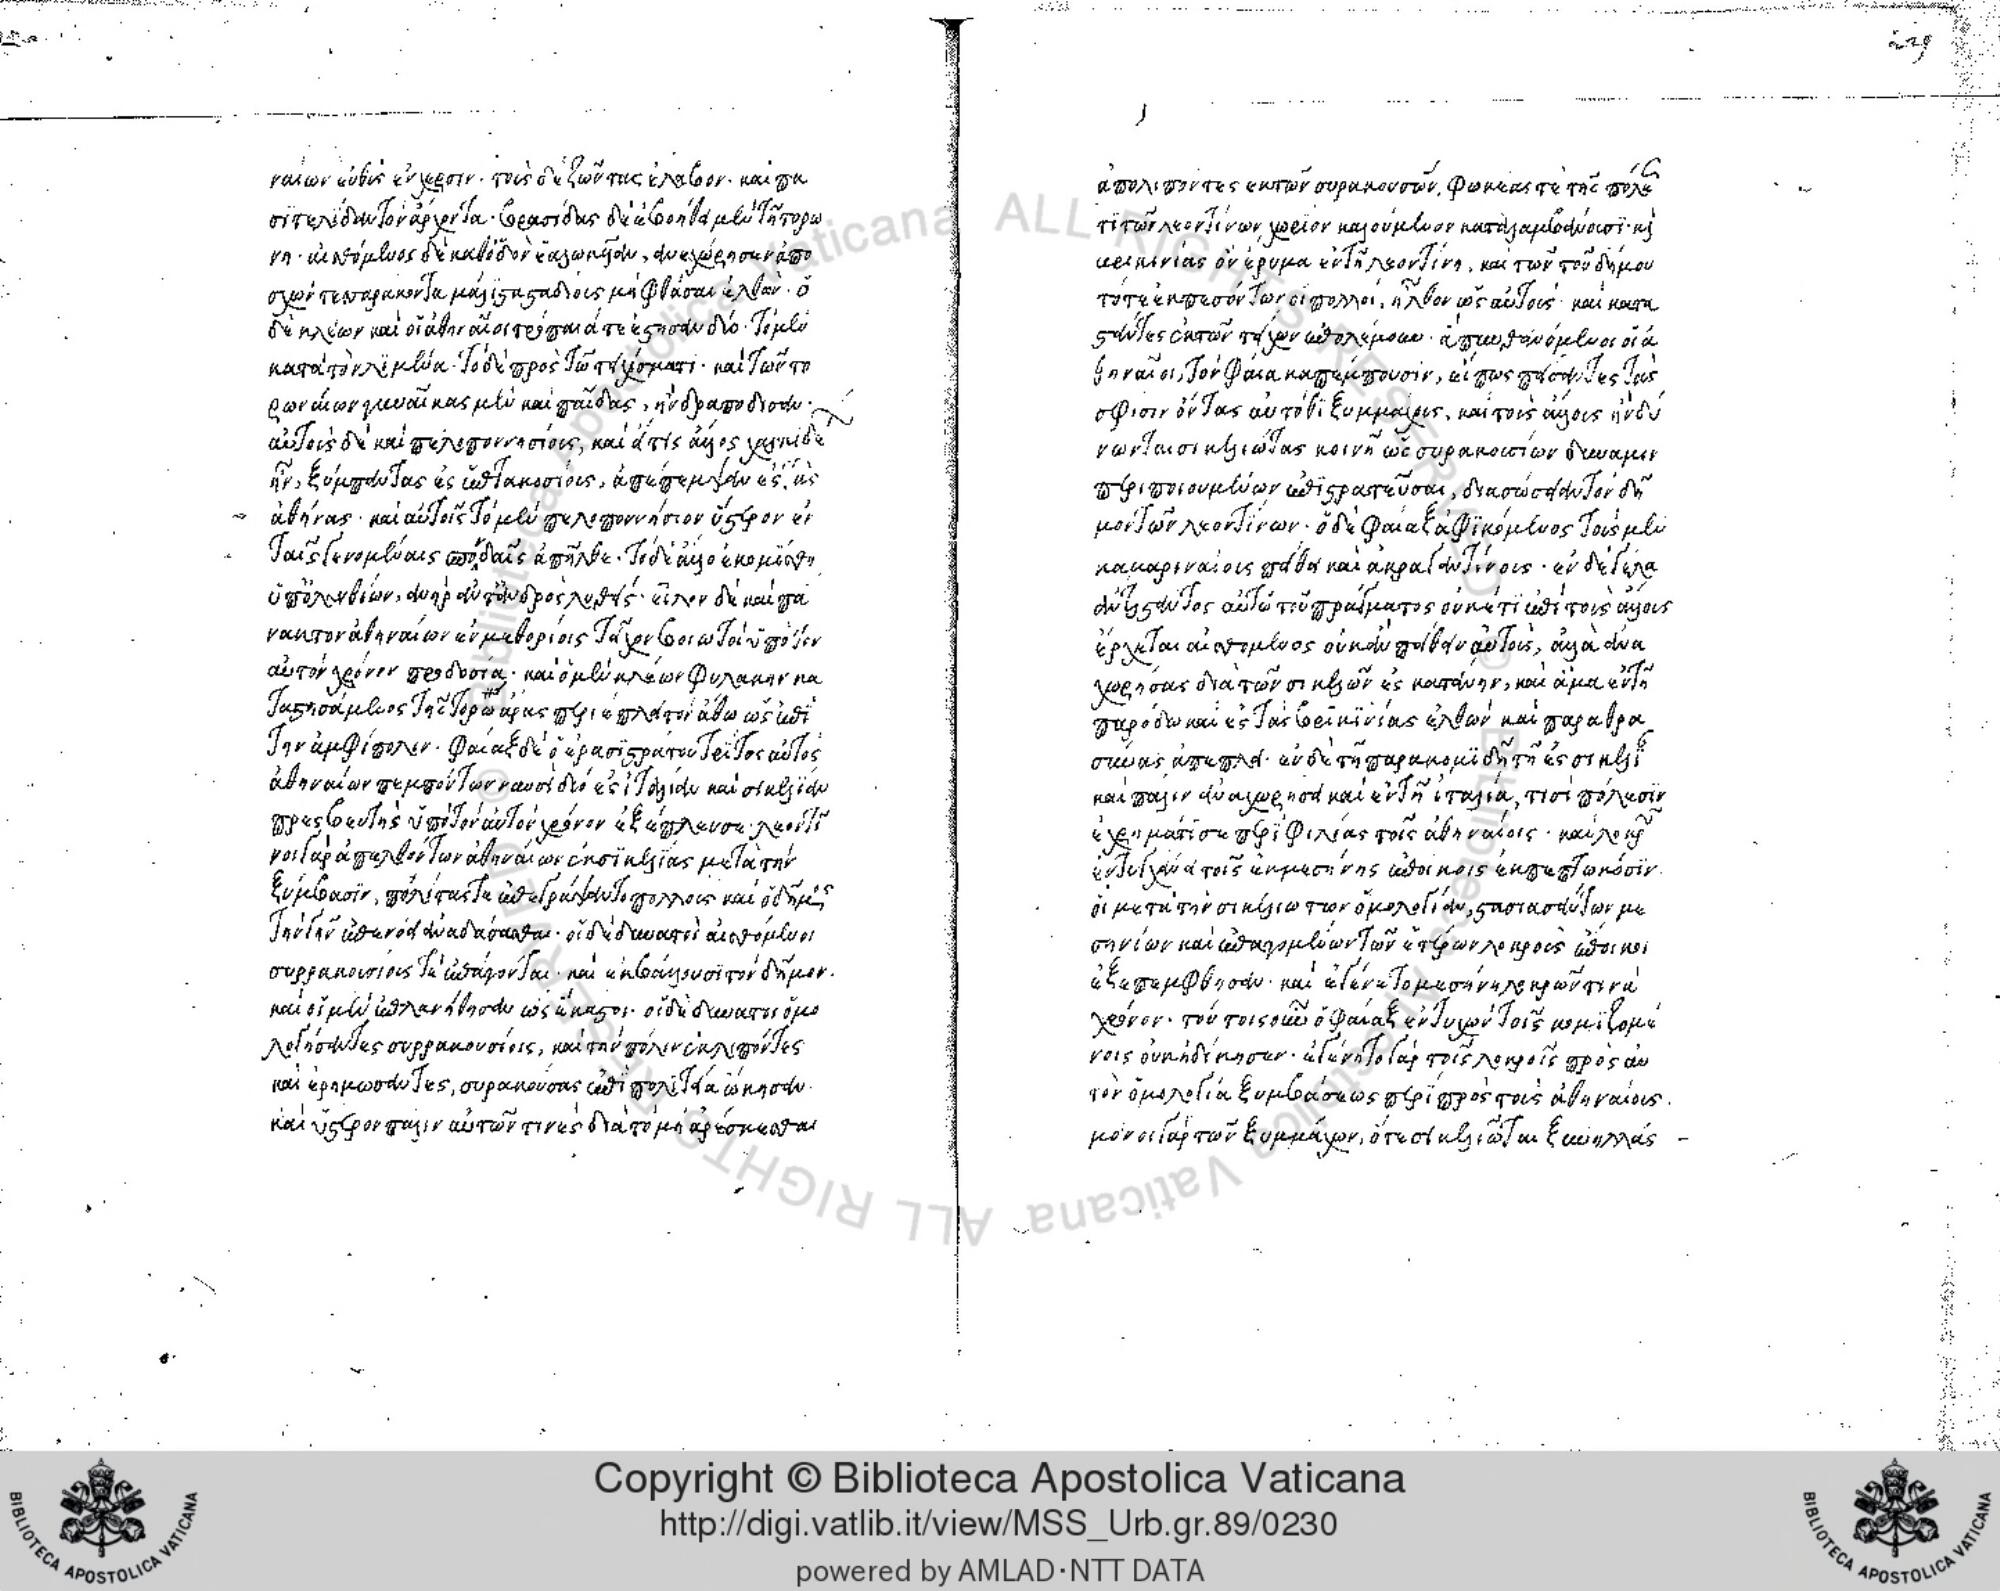 ναίων εὐθὺς ἐν χερσὶν· τοὺς δὲ ζῶντας ἔλαβον· καὶ πα
σιτελίδαν τὸν ἄρχοντα· βρασίδας δὲ ἐβοήθει μὲν τῆ τορώ
νη· αἰσθόμενος δὲ καθ' ὁδὸν ἑαλωκυῖαν, ἀνεχώρησεν ἀπο
σχὼν τεσσαράκοντα μάλιστα σταδίους μὴ φθάσαι ἐλθών· ὁ
δὲ κλέων καὶ οἱ ἀθηναῖοι τροπαῖά τε ἔστησαν δύο· τὸ μὲν
κατὰ τὸν λιμένα· τὸ δὲ πρὸς τῶ τειχίσματι· καὶ τῶν το
ρωναίων γυναῖκας μὲν καὶ παῖδας, ἠνδραπόδισαν·
αὐτοὺς δὲ καὶ πελοποννησίους, καὶ εἴ τις ἄλλος χαλκιδέ
ἦν, ξύμπαντας ἐς ἑπτακοσίους, ἀπέπεμψαν ἐς ἀς
ἀθήνας· καὶ αὐτοῖς τὸ μὲν πελοποννήσιον ὕστερον ἐν
ταῖς γενομέναις σπονδαῖς ἀπῆλθε· τὸ δὲ ἄλλο ἐκομίσθη
ὑπ' ὀλυνθίων, ἀνὴρ ἀντ' ἀνδρὸς λυθείς· εἷλον δὲ καὶ πά
νακτον ἀθηναίων ἐν μεθορίοις τεῖχος βοιωτοὶ ὑπὸ τὸν
αὐτὸν χρόνον προδοσία· καὶ ὁ μὲν κλέων φυλακὴν κα
ταστησάμενος τῆς τορώνης ἄρας περιέπλει τὸν ἄθω ὡς ἐπὶ
τὴν ἀμφίπολιν· φαίαξ δὲ ὁ ἐρασιστράτου τρίτος αὐτὸς
ἀθηναίων πεμπόντων ναυσὶ δύο ἐς ἰταλίαν καὶ σικελίαν
πρεσβευτὴς ὑπὸ τὸν αὐτὸν χρόνον ἐξέπλευσε· λεοντῖ
νοι γὰρ ἀπελθόντων ἀθηναίων ἐκ σικελίας μετὰ τὴν
ξύμβασιν, πολίτας τε ἐπεγράψαντο πολλοὺς καὶ ὁ δῆμος
τὴν γῆν ἐπενόει ἀναδάσασθαι· οἱ δὲ δυνατοὶ αἰσθόμενοι
συρρακουσίους τε ἐπάγονται· καὶ ἐκβάλλουσι τὸν δῆμον·
καὶ οἱ μὲν ἐπλανήθησαν ὡς ἕκαστοι· οἱ δὲ δυνατοὶ ὁμο
λογήσαντες συρρακουσίοις, καὶ τὴν πόλιν ἐκλιπόντες
καὶ ἐρημώσαντες, συρακούσας ἐπὶ πολιτεία ὤκησαν·
καὶ ὕστερον πάλιν αὐτῶν τινὲς διὰ τὸ μὴ ἀρέσκεσθαι
ἀπολιπόντες ἐκ τῶν συρακουσῶν, φωκέας τε τῆς πόλε
τι τῶν λεοντίνων χωρίον καλούμενον καταλαμβάνουσι· κὶ
βρικιννίας ὂν ἔρυμα ἐν τῆ λεοντίνη, καὶ τῶν τοῦ δήμου
τότε ἐκπεσόντων οἱ πολλοὶ, ἦλθον ὡς αὐτούς· καὶ κατα
στάντες ἐκ τῶν τειχῶν ἐπολέμουν· ἃ πυνθανόμενοι οἱ ἀ
θηναῖοι, τὸν φαίακα πέμπουσιν, εἴ πως πείσαντες τοὺς
σφίσιν ὄντας αὐτόθι ξυμμάχους, καὶ τοὺς ἄλλους ἢν δύ
νωνται σικελιώτας κοινῆ ὡς συρακουσίων δύναμιν
περιποιουμένων ἐπιστρατεῦσαι, διασώσειαν τὸν δῆ
μον τῶν λεοντίνων· ὁ δὲ φαίαξ ἀφικόμενος τοὺς μὲν
καμαριναίους πείθει καὶ ἀκραγαντίνους· ἐν δὲ γέλα
ἀντιστάντος αὐτῶ τοῦ πράγματος οὐκέτι ἐπὶ τοὺς ἄλλους
ἔρχεται αἰσθόμενος οὐκ ἂν πείθειν αὐτοὺς, ἀλλὰ ἀνα
χωρήσας διὰ τῶν σικελῶν ἐς κατάνην, καὶ ἅμα ἐν τῆ
παρόδω καὶ ἐς τὰς βρικιννίας ἐλθὼν καὶ παραθρα
σύνας ἀπέπλει· ἐν δὲ τῆ παρακομιδῆ τῆ ἐς σικελί
καὶ πάλιν ἀναχωρήσει καὶ ἐν τῆ ἰταλία, τισὶ πόλεσιν
ἐχρημάτισε περὶ φιλίας τοῖς ἀθηναίοις· καὶ λοκρῶ
ἐντυγχάνει τοῖς ἐκ μεσήνης ἐποίκοις ἐκπεπτωκόσιν·
οἳ μετὰ τὴν σικελιωτῶν ὁμολογίαν, στασιασάντων με
σηνίων καὶ ἐπαγομένων τῶν ἑτέρων λοκροὺς ἔποικοι
ἐξεπέμφθησαν· καὶ ἐγένετο μεσήνη λοκρῶν τινὰ
χρόνον· τούτοις οὖν ὁ φαίαξ ἐντυχὼν τοῖς κομιζομέ
νοις οὐκ ἠδίκησεν· ἐγένητο γὰρ τοῖς λοκροῖς πρὸς αὐ
τὸν ὁμολογία ξυμβάσεως περὶ πρὸς τοὺς ἀθηναίους·
μόνοι γὰρ τῶν ξυμμάχων, ὅτε σικελιῶται ξυνηλλάς